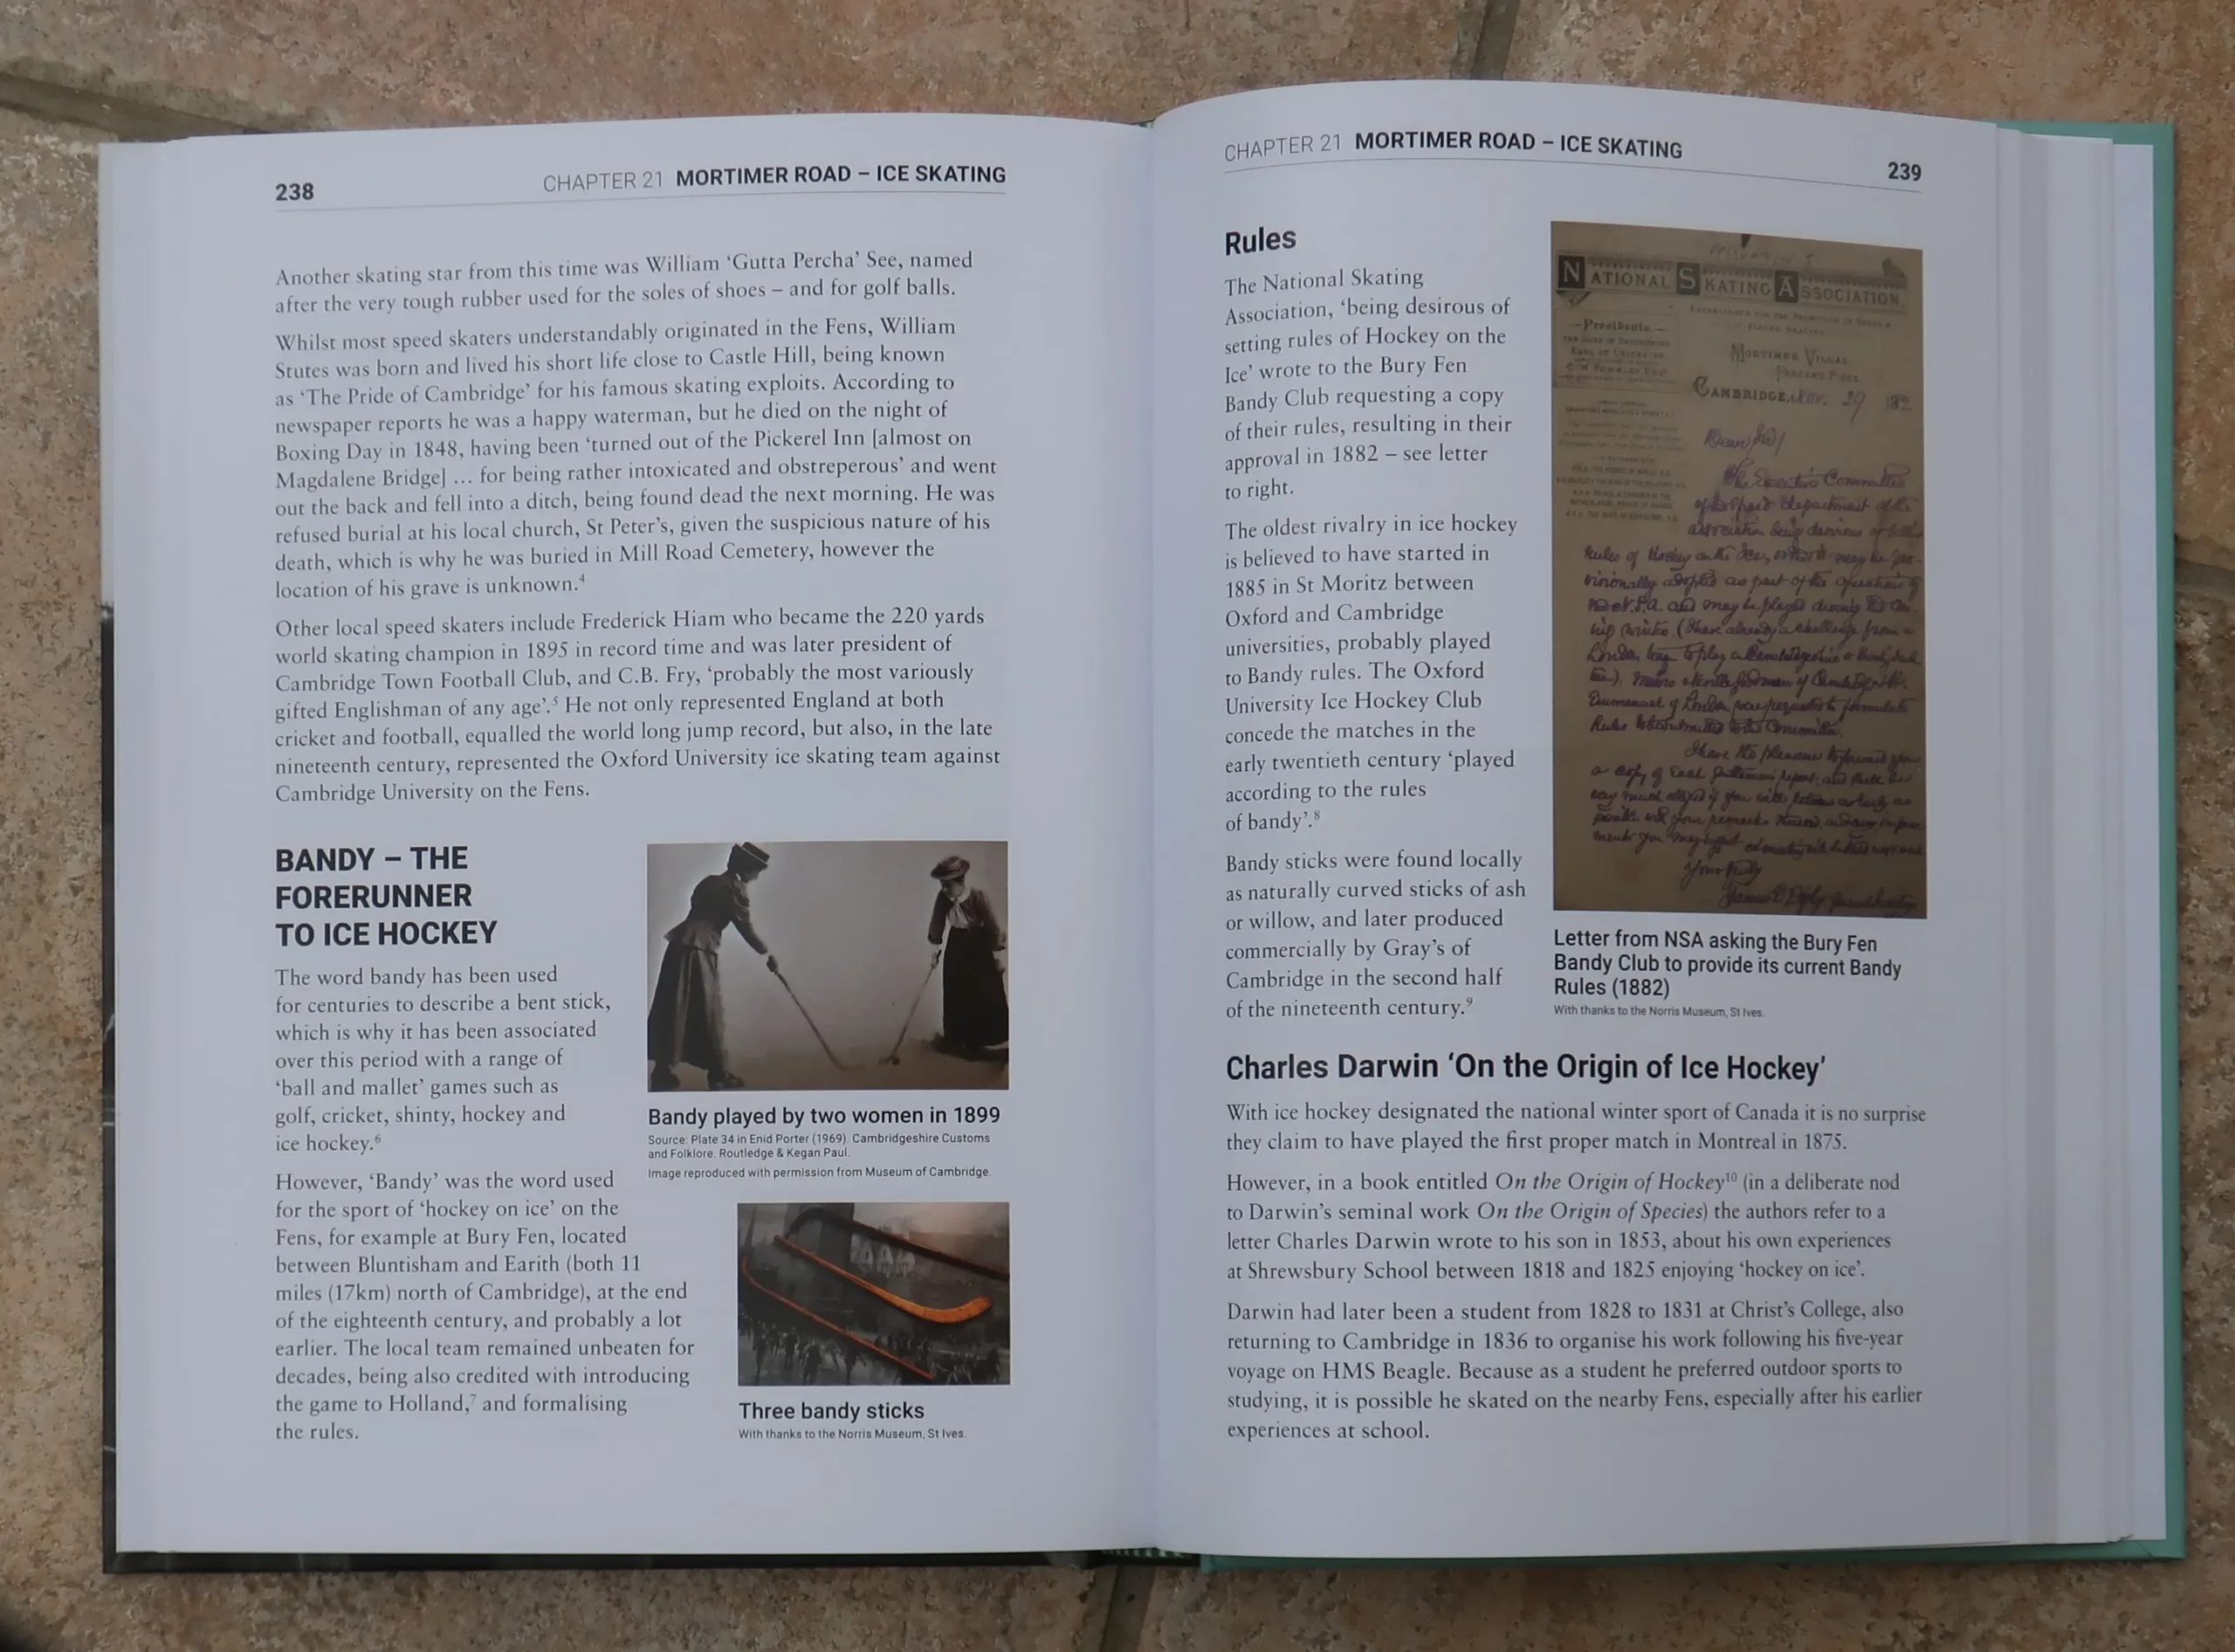 238
CHAPTER 21 MORTIMER ROAD – ICE SKATING
Another skating star from this time was William ‘Gutta Percha’ See, named
after the very tough rubber used for the soles of shoes – and for golf balls.
Whilst most speed skaters understandably originated in the Fens, William
Stutes was born and lived his short life close to Castle Hill, being known
as ‘The Pride of Cambridge’ for his famous skating exploits. According to
newspaper reports he was a happy waterman, but he died on the night of
Boxing Day in 1848, having been ‘turned out of the Pickerel Inn [almost on
Magdalene Bridge] … for being rather intoxicated and obstreperous’ and went
out the back and fell into a ditch, being found dead the next morning. He was
refused burial at his local church, St Peter’s, given the suspicious nature of his
death, which is why he was buried in Mill Road Cemetery, however the
location of his grave is unknown.⁴
Other local speed skaters include Frederick Hiam who became the 220 yards
world skating champion in 1895 in record time and was later president of
Cambridge Town Football Club, and C.B. Fry, ‘probably the most variously
gifted Englishman of any age’.⁵ He not only represented England at both
cricket and football, equalled the world long jump record, but also, in the late
nineteenth century, represented the Oxford University ice skating team against
Cambridge University on the Fens.
BANDY – THE
FORERUNNER
TO ICE HOCKEY
The word bandy has been used
for centuries to describe a bent stick,
which is why it has been associated
over this period with a range of
‘ball and mallet’ games such as
golf, cricket, shinty, hockey and
ice hockey.⁶
However, ‘Bandy’ was the word used
for the sport of ‘hockey on ice’ on the
Fens, for example at Bury Fen, located
between Bluntisham and Earith (both 11
miles (17km) north of Cambridge), at the end
of the eighteenth century, and probably a lot
earlier. The local team remained unbeaten for
decades, being also credited with introducing
the game to Holland,⁷ and formalising
the rules.
Bandy played by two women in 1899
Source: Plate 34 in Enid Porter (1969). Cambridgeshire Customs
and Folklore. Routledge & Kegan Paul.
Image reproduced with permission from Museum of Cambridge.
Three bandy sticks
With thanks to the Norris Museum, St Ives.
CHAPTER 21 MORTIMER ROAD – ICE SKATING
239
Rules
The National Skating
Association, ‘being desirous of
setting rules of Hockey on the
Ice’ wrote to the Bury Fen
Bandy Club requesting a copy
of their rules, resulting in their
approval in 1882 – see letter
to right.
The oldest rivalry in ice hockey
is believed to have started in
1885 in St Moritz between
Oxford and Cambridge
universities, probably played
to Bandy rules. The Oxford
University Ice Hockey Club
concede the matches in the
early twentieth century ‘played
according to the rules
of bandy’.⁸
Bandy sticks were found locally
as naturally curved sticks of ash
or willow, and later produced
commercially by Gray’s of
Cambridge in the second half
of the nineteenth century.⁹
NATIONAL SKATING ASSOCIATION
Presidents.
MORTIMER VILLAS,
CAMBRIDGE, Nov. 29 1882
Dear Sir/
The Executive Committee
of the speed department of the
association being desirous of
Rules of Hockey on the Ice,
Letter from NSA asking the Bury Fen
Bandy Club to provide its current Bandy
Rules (1882)
With thanks to the Norris Museum, St Ives.
Charles Darwin ‘On the Origin of Ice Hockey’
With ice hockey designated the national winter sport of Canada it is no surprise
they claim to have played the first proper match in Montreal in 1875.
However, in a book entitled On the Origin of Hockey¹⁰ (in a deliberate nod
to Darwin’s seminal work On the Origin of Species) the authors refer to a
letter Charles Darwin wrote to his son in 1853, about his own experiences
at Shrewsbury School between 1818 and 1825 enjoying ‘hockey on ice’.
Darwin had later been a student from 1828 to 1831 at Christ’s College, also
returning to Cambridge in 1836 to organise his work following his five-year
voyage on HMS Beagle. Because as a student he preferred outdoor sports to
studying, it is possible he skated on the nearby Fens, especially after his earlier
experiences at school.